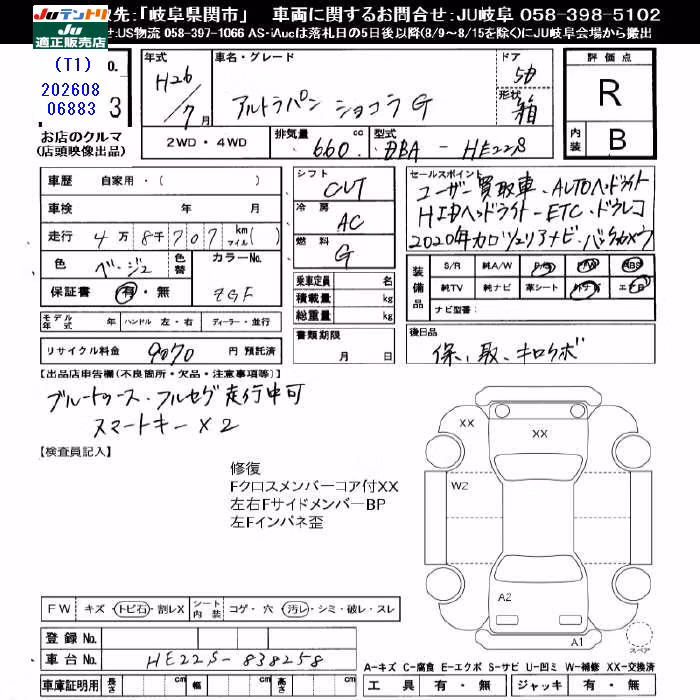 JUテントリ JU適正販売店
先:「岐阜県関市」 車両に関するお問合せ:JU岐阜 058-398-5102
せ:US物流 058-397-1066 AS-iAucは落札日の5日後以降(8/9～8/15を除く)にJU岐阜会場から搬出
(T1)
202608
06883
o.
3
お店のクルマ
(店頭映像出品)
年式 車名・グレード ドア 評価点
H26/7月 アルトラパン ショコラG 5D
形状 箱
R
内装 B
2WD・4WD 排気量 660 cc 型式 DBA-HE22S
車歴 自家用・( )
車検 年 月
走行 4万8千707 km マイル( )
色 ベージュ 色替 カラーNo. ZGF
保証書 有・無
モデル年式 年 ハンドル 左・右 ディーラー・並行
リサイクル料金 9070 円 預託済
シフト CVT
冷房 AC
燃料 G
乗車定員 名
積載量 kg
総重量 kg
書類期限
月 日
セールスポイント
ユーザー買取車・AUTOヘッドライト
HIDヘッドライト-ETC・ドラレコ
2020年カロッツェリアナビ・バックカメラ
装備品 S/R 純A/W P/S P/W ABS
純TV 純ナビ 革シート エアB
ナビ型番:
後日品
保、取、キロクボ
【出品店申告欄(不良箇所・欠品・注意事項等)】
ブルートゥース・フルセグ走行中可
スマートキー×2
【検査員記入】
修復
FクロスメンバーコアXX付XX
左右FサイドメンバーBP
左Fインパネ歪
XX
XX
W2
A2
A1
スペア
FW キズ・トビ石・割レX シート内装 コゲ・穴・汚レ・シミ・破レ・スレ
登録No.
車台No. HE22S-838258
車庫証明用 長さ cm 幅 cm 高さ cm
A-キズ C-腐食 E-エクボ S-サビ U-凹ミ W-補修 XX-交換済
工具 有・無 ジャッキ 有・無